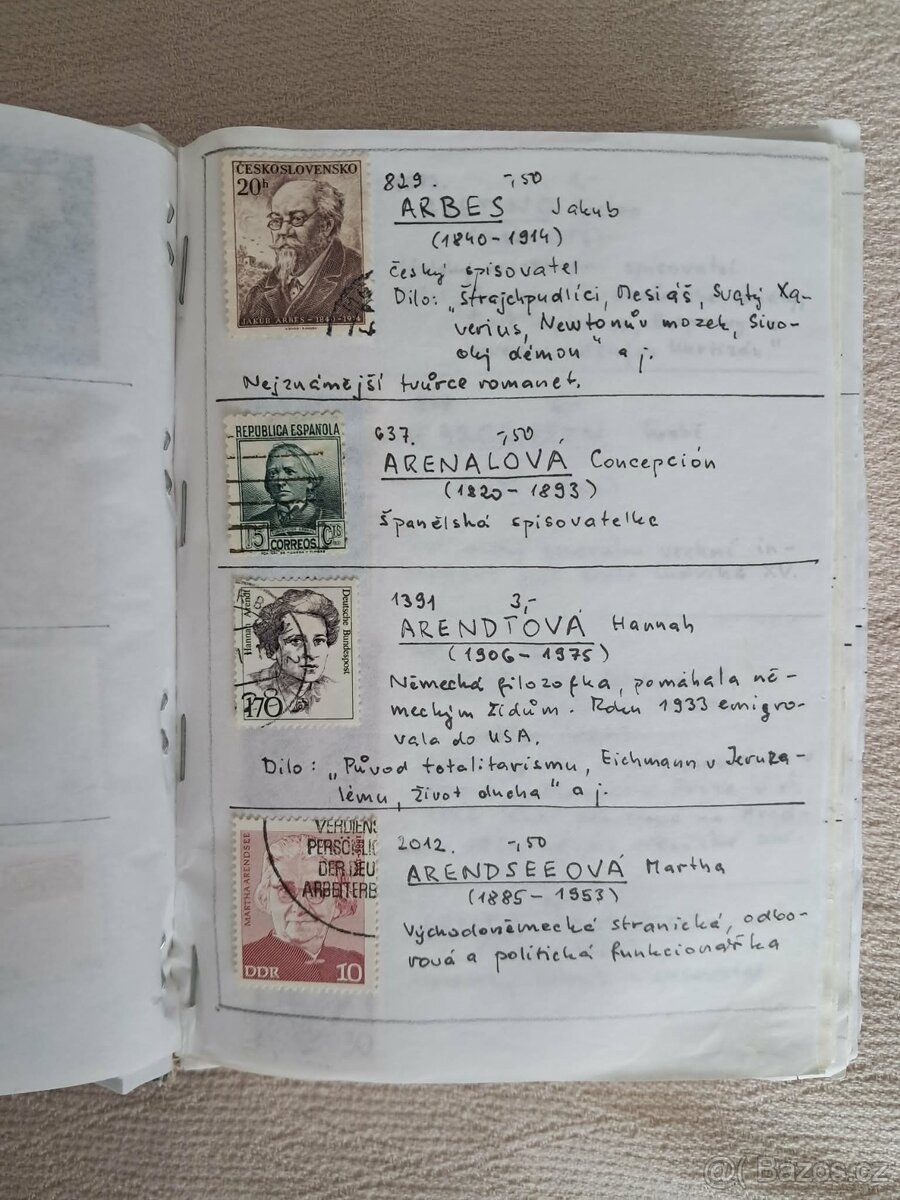 ČESKOSLOVENSKO
20h
JAKUB ARBES – 1840–1914
829. -,50
ARBES Jakub
(1840-1914)
český spisovatel
Dílo: "Štrajchpudlíci, Mesiáš, Svatý Xa-
verius, Newtonův mozek, Sivo-
oký démon" a j.
Nejznámější tvůrce romanet.
REPÚBLICA ESPAÑOLA
15 Cts
CORREOS
637. -,50
ARENALOVÁ Concepción
(1820-1893)
Španělská spisovatelka
Hannah Arendt
Deutsche Bundespost
170
1391 3,-
ARENDTOVÁ Hannah
(1906-1975)
Německá filozofka, pomáhala ně-
meckým židům. Roku 1933 emigro-
vala do USA.
Dílo: "Původ totalitarismu, Eichmann v Jeruza-
lému, Život ducha" a j.
VERDIENS
PERSÖNLIC
DER DEU
ARBEITERB
MARTHA ARENDSEE
DDR 10
2012. -,50
ARENDSEEOVÁ Martha
(1885-1953)
Východoněmecká stranická, odbo-
rová a politická funkcionářka
@( Bazos.cz